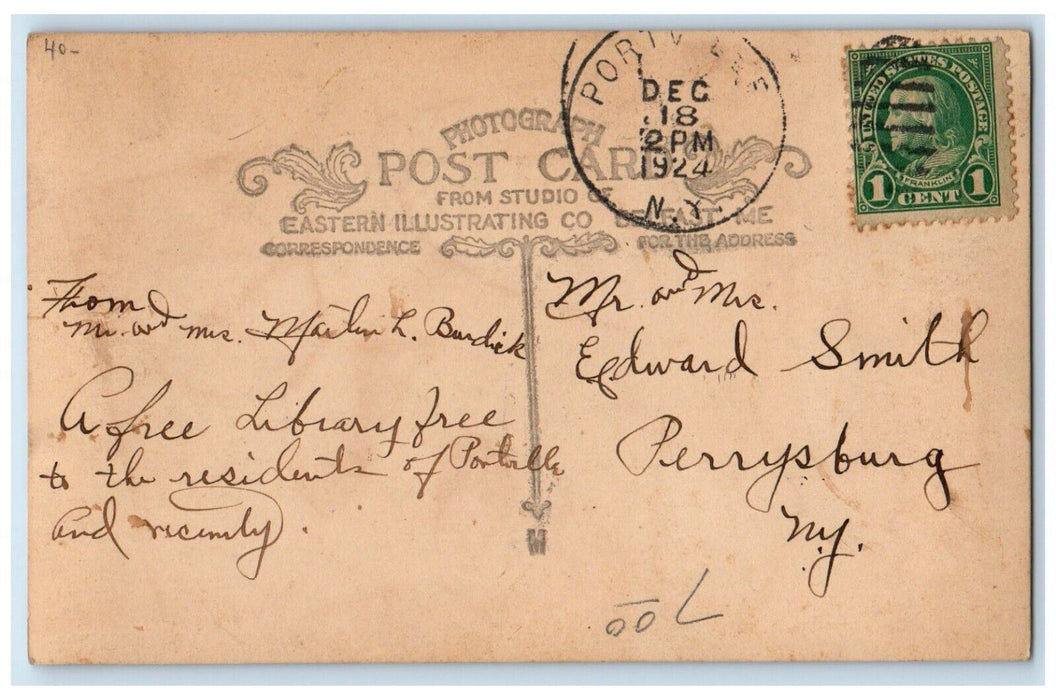 40-
PORTVILLE
DEC
18
2 PM
1924
N.Y.
UNITED STATES POSTAGE
FRANKLIN
1 CENT 1
PHOTOGRAPH
POST CARD
FROM STUDIO OF
EASTERN ILLUSTRATING CO BELFAST ME
CORRESPONDENCE
FOR THE ADDRESS
From
Mr. and Mrs. Martin L. Burdick
A free Library free
to the residents of Portville
and vicinity.
Mr. and Mrs.
Edward Smith
Perrysburg
N.Y.
M
7 00